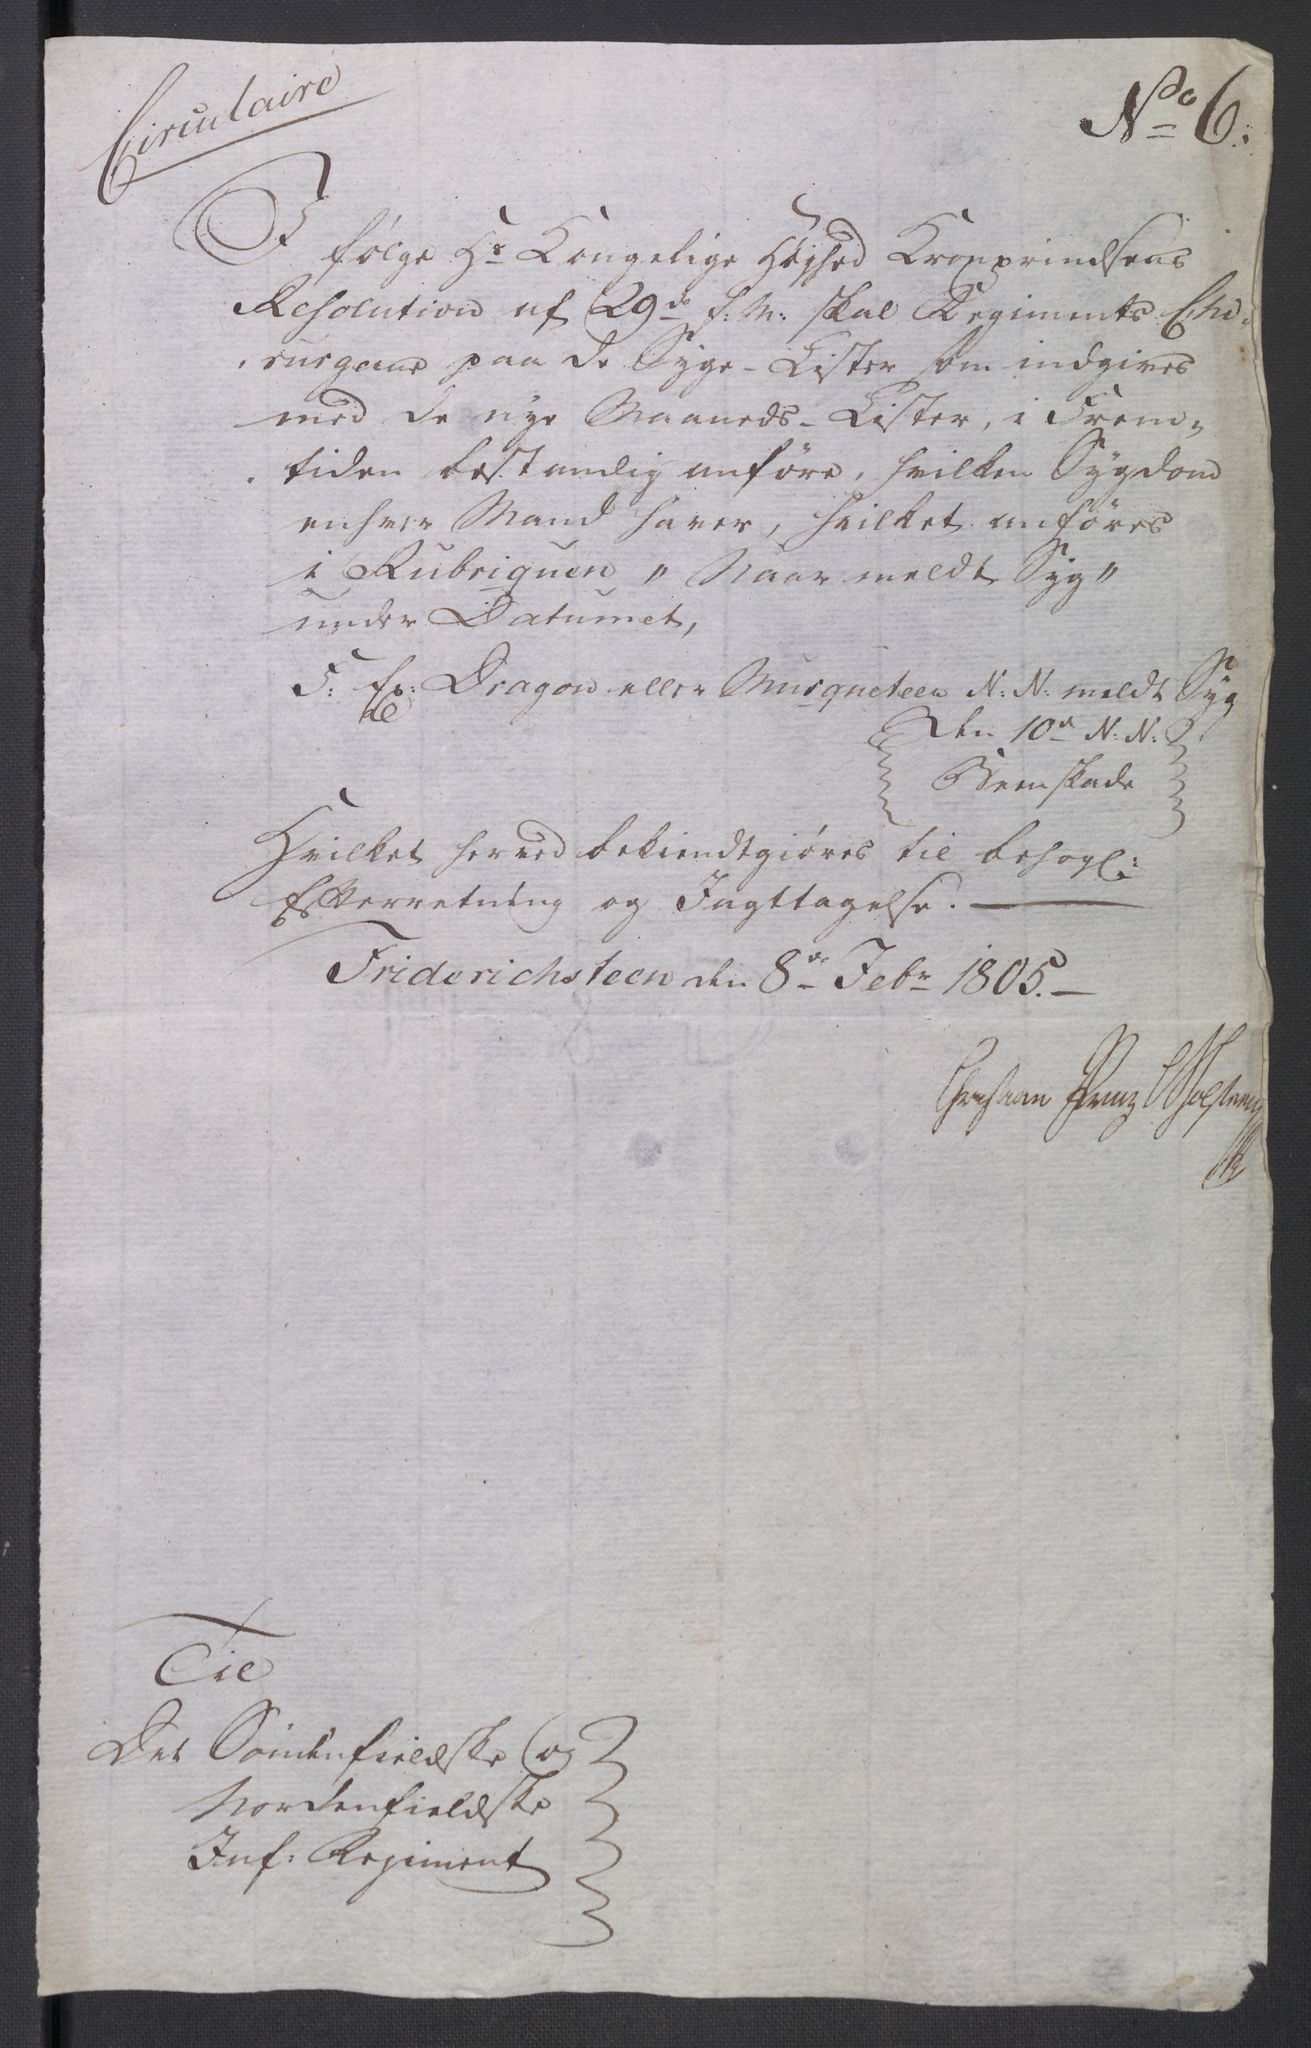 Circulaire
No 6.
I
følge Hs Kongelige Høyhed Kronprindsens
Resolution af 29de f: M: skal Regiments Chi-
rurgerne paa de Syge-Lister som indgives
med de nye Maaneds-Lister, i Frem-
tiden bestandig anføre, hvilken Sygdom
enhver Mand haver, hvilket anføres
i Rubriquen "Naar meldt Syg"
under Datumet,
F: Ex: Dragon eller Musqueteer N: N: meldt Syg
den 10de N: N:
Beenskade
Hvilket herved bekiendtgiøres til behagl:
Efterretning og Iagttagelse.
Friderichsteen den 8de Febr 1805.
Til
Det Søndenfieldske og
Nordenfieldske
Inf: Regiment